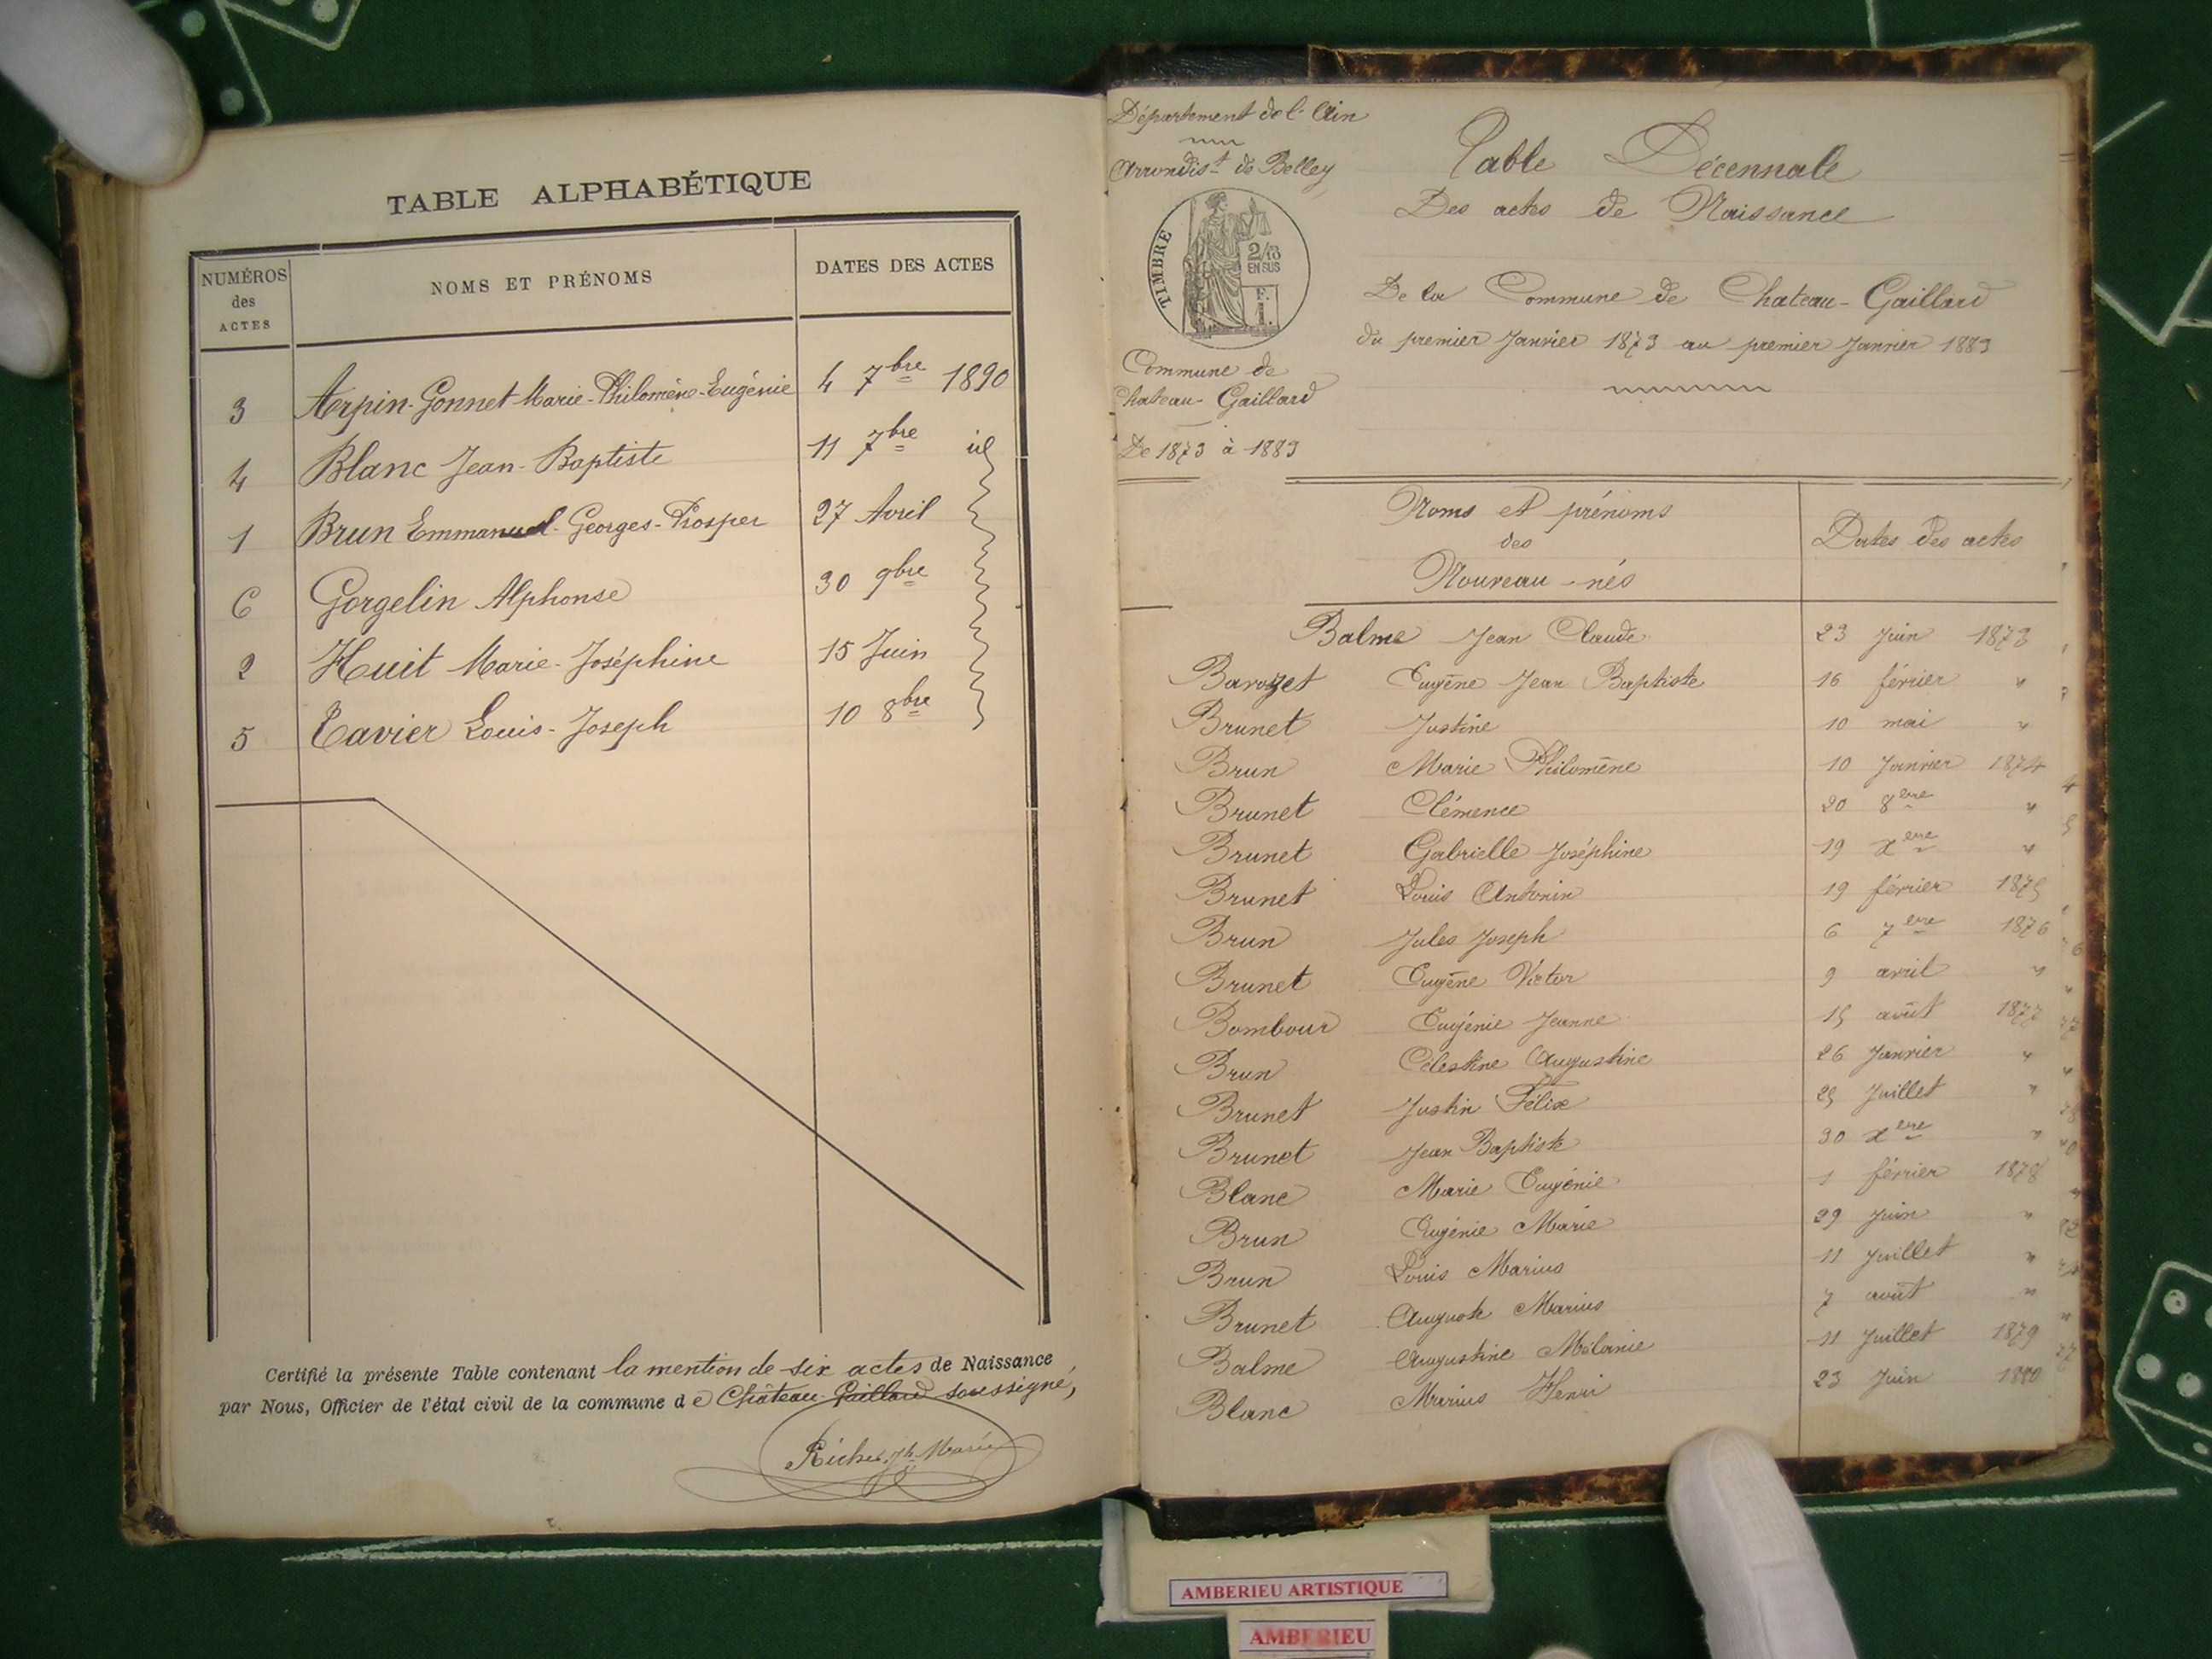 TABLE ALPHABÉTIQUE
NUMÉROS
des
ACTES
NOMS ET PRÉNOMS
DATES DES ACTES
3 Arpin-Gonnet Marie-Philomène-Eugénie 4 7bre 1890
4 Blanc Jean-Baptiste 11 7bre id
1 Brun Emmanuel-Georges-Prosper 27 Avril
6 Gorgelin Alphonse 30 9bre
2 Huit Marie-Joséphine 15 Juin
5 Tavier Louis-Joseph 10 8bre
Certifié la présente Table contenant la mention de six actes de Naissance
par Nous, Officier de l'état civil de la commune de Château-Gaillard soussigné,
Département de l'Ain
Arrondist de Belley
TIMBRE
2/10
EN SUS
F.
1.
Commune de
Chateau-Gaillard
De 1873 à 1883
Table Décennale
Des actes de Naissance
De la Commune de Chateau-Gaillard
du premier Janvier 1873 au premier Janvier 1883
Noms et prénoms
des
Nouveau-nés
Dates des actes
Balme Jean Claude 23 Juin 1873
Barozet Eugène Jean Baptiste 16 février "
Brunet Justine 10 mai "
Brun Marie Philomène 10 Janvier 1874
Brunet Clémence 20 8bre "
Brunet Gabrielle Joséphine 19 xbre "
Brunet Louis Antonin 19 février 1875
Brun Jules Joseph 6 7bre 1876
Brunet Eugène Victor 9 avril "
Bombour Eugénie Jeanne 15 août 1877
Brun Célestine Augustine 26 Janvier "
Brunet Justin Félix 25 Juillet "
Brunet Jean Baptiste 30 xbre "
Blanc Marie Eugénie 1 février 1878
Brun Eugénie Marie 29 Juin "
Brun Louis Marius 11 Juillet "
Brunet Auguste Marius 7 août "
Balme Augustine Mélanie 11 Juillet 1879
Blanc Marius Henri 23 Juin 1880
AMBERIEU ARTISTIQUE
AMBERIEU